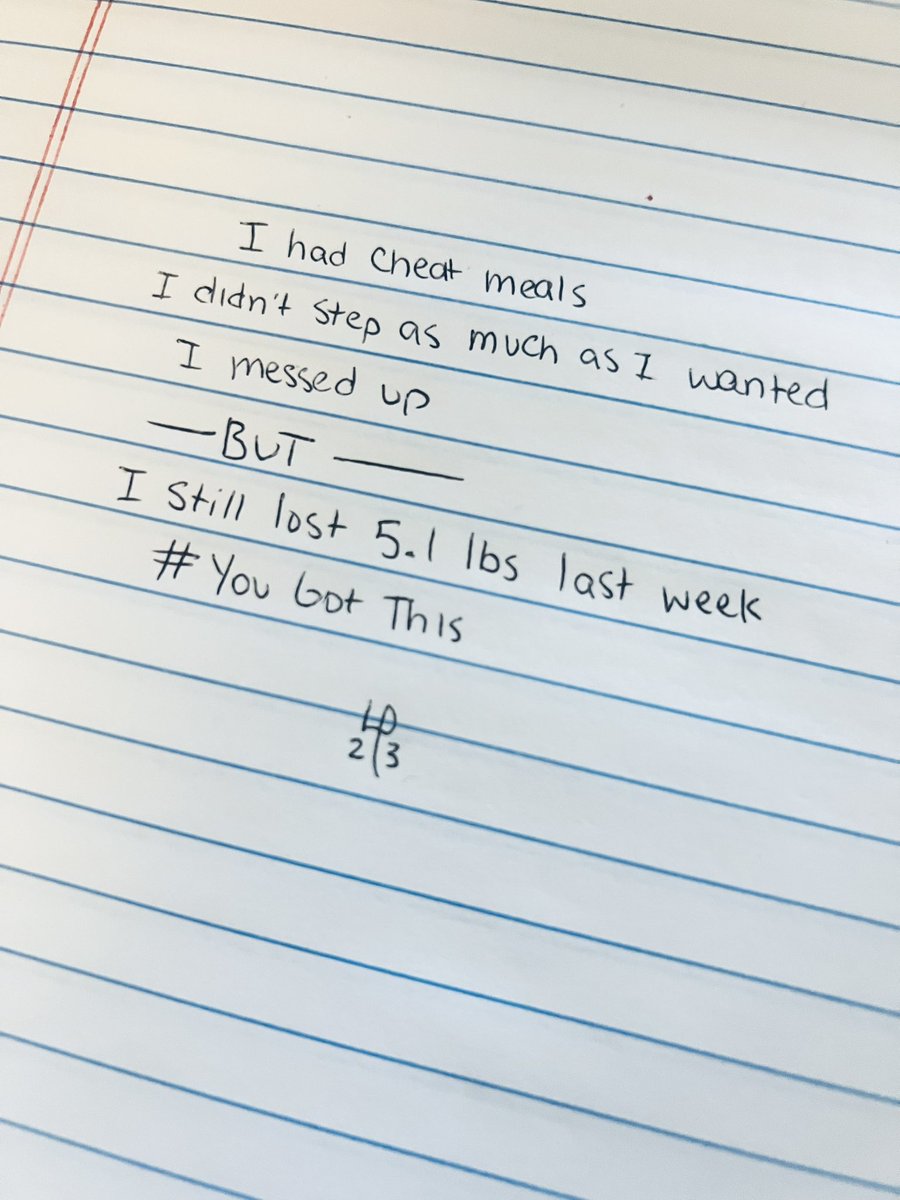 I had cheat meals
I didn't step as much as I wanted
I messed up
—BUT—
I still lost 5.1 lbs last week
#You Got This
2 3